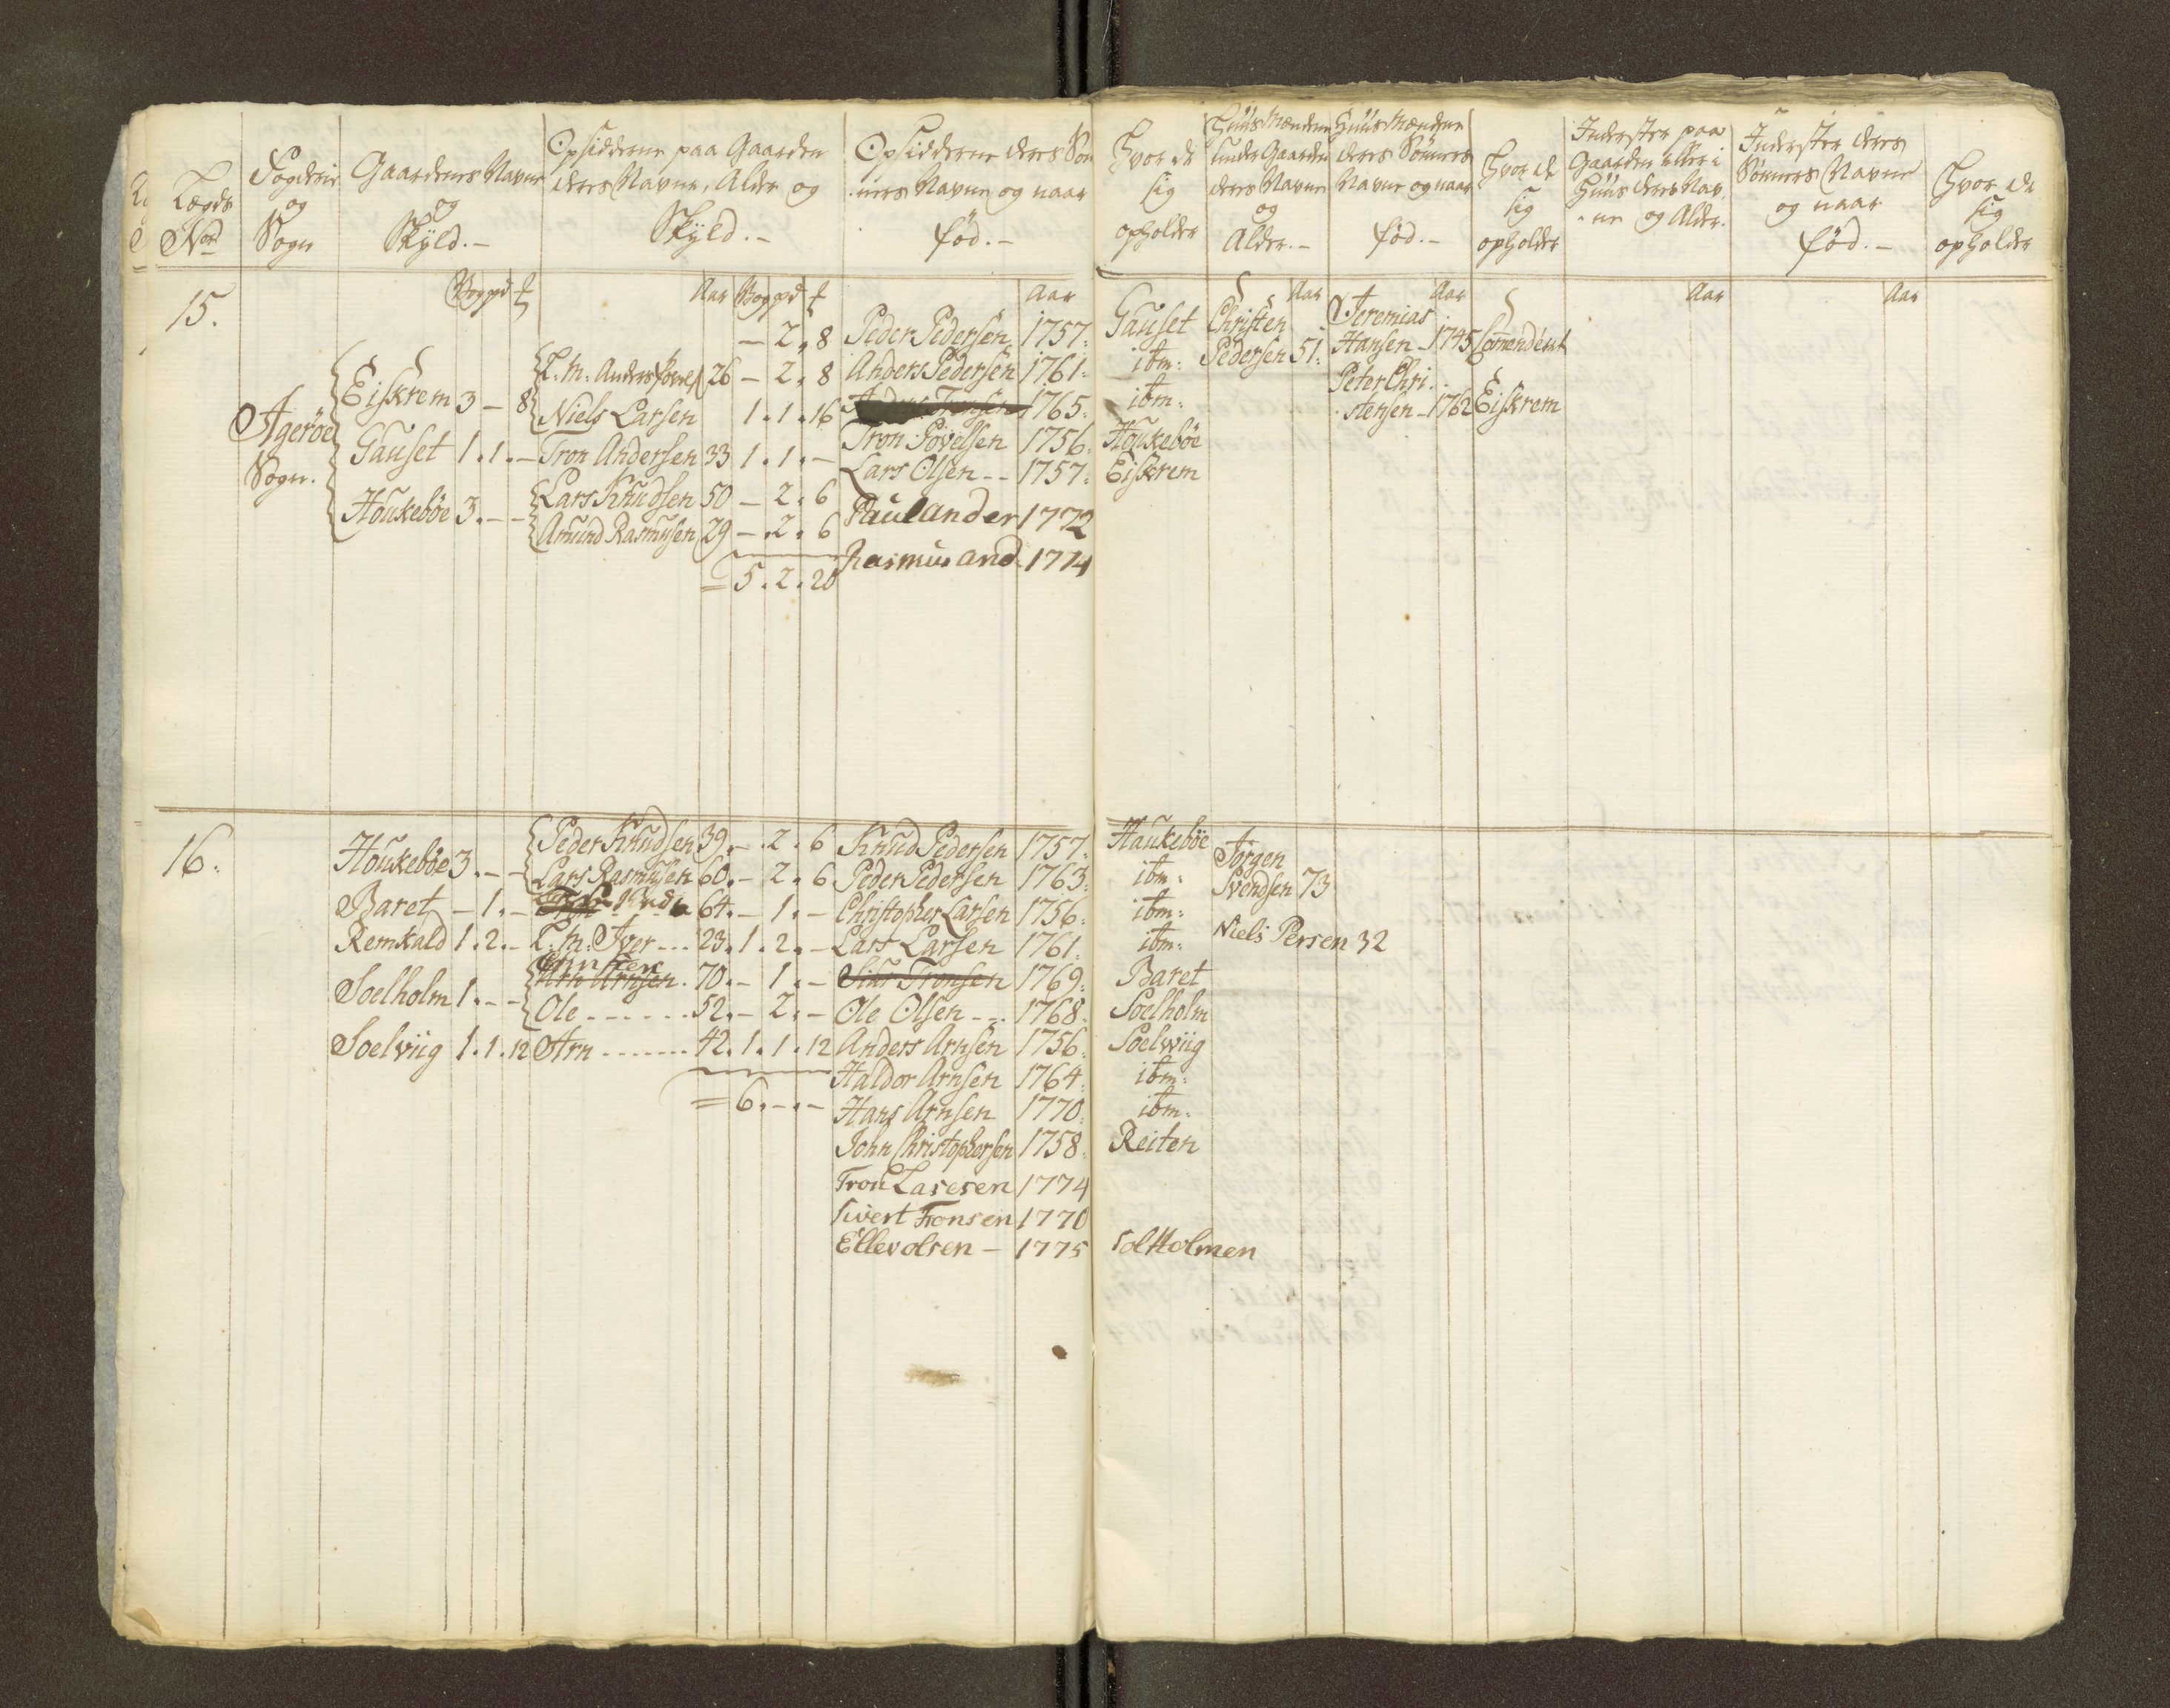 Lægds
No
Fogderie
og
Sogn
Gaardenes Navne
og
Skÿld.-
Opsidderne paa Gaarden
deres Navne, Alder og
Skÿld.-
Opsidderne deres Søn
-ners Navne og naar
fød.-
Hvor de
sig
opholder
Huusmændene
under Gaarden
deres Navne
og
Alder.-
Huusmændene
deres Sønners
Navne og naar
fød.-
Hvor de
sig
opholder
Inderster paa
Gaarden eller i
Huus deres Nav
-ne og Alder.
Inderster deres
Sønners Navne
og naar
fød.-
Hvor de
sig
opholder
Aar
Aar
Aar
Aar
Aar
Aar
15.
Agerøe
Sogn.
Eiskrem 3 - 8
Gauset 1.1.-
Houkebøe 3.--
- 2. 8
26 - 2. 8
Niels Larsen 1.1.16
Tron Andersen 33 1.1.-
Lars Knudsen 50 - 2. 6
Amund Rasmusen 29 - 2. 6
= 5. 2. 20
Peder Pedersen 1757. Gauset
Anders Pedersen 1761. ibm:
1765. ibm:
Tron Povelsen 1756. Houkebøe
Lars Olsen -- 1757. Eiskrem
Paul ander 1772
Rasmus and 1774
Christen
Pedersen 51.
Jeremias
Hansen - 1745
Peter Chri
stensen - 1762 Eiskrem
16.
Houkebøe 3.--
Baret - 1.-
Remkald 1. 2.-
Soelholm 1.--
Soelviig 1. 1. 12
Peder Knudsen 39.- 2. 6
Lars Rasmusen 60.- 2. 6
64.- 1.-
L: M: Iver --- 23. 1. 2.-
Arn Arnsen. 70.- 1.-
Ole ------ 52.- 2.-
Arn ------- 42. 1. 1. 12
= 6.-.-
Knud Pedersen 1757. Haukebøe
Peder Pedersen 1763. ibm:
Christopher Larsen 1756. ibm:
Lars Larsen 1761. ibm:
Siur Tronsen 1769. Baret
Ole Olsen --- 1768. Soelholm
Anders Arnsen 1756. Soelwiig
Haldor Arnsen 1764. ibm:
Hans Arnsen 1770. ibm:
John Christophersen 1758. Reiten
Tron Lasesen 1774
Sivert Tronsen 1770
Ellev olsen - 1775 Solholmen
Jørgen
Svendsen 73
Niels Persen 32